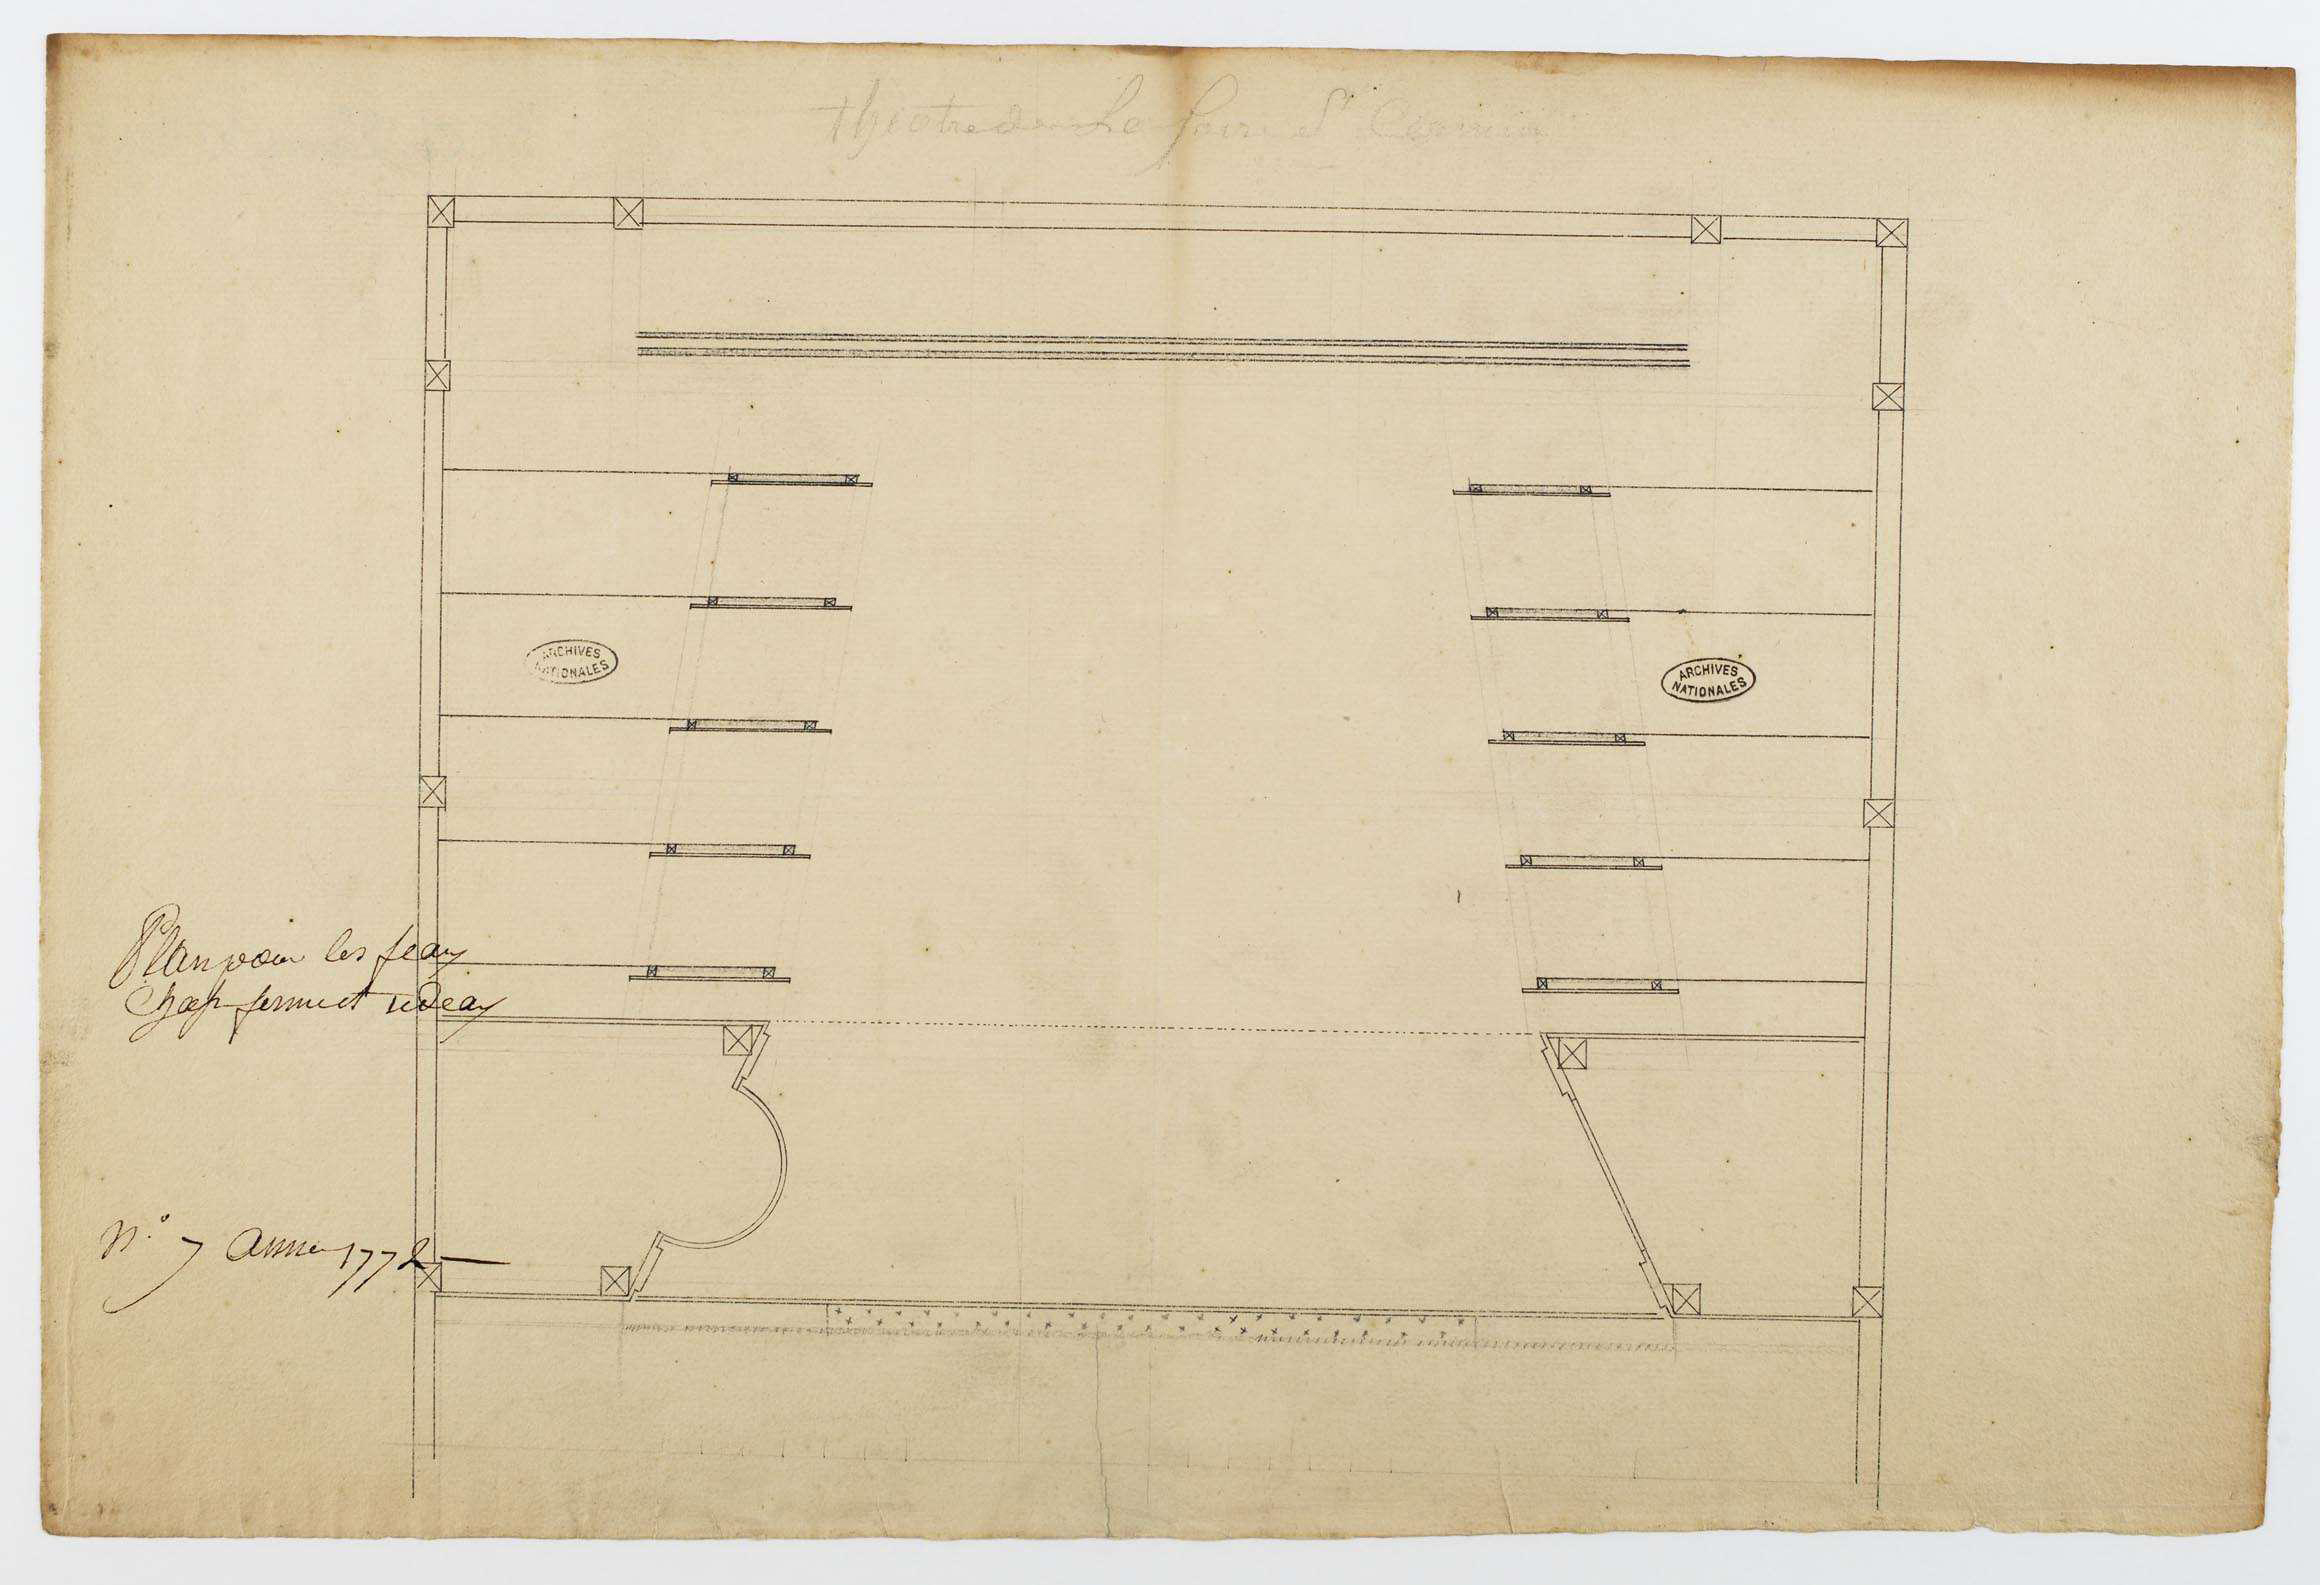 theatre de la foire St Germain
ARCHIVES
NATIONALES
ARCHIVES
NATIONALES
Plan pour les
Chas ferme et rideau
N.º 7 année 1772